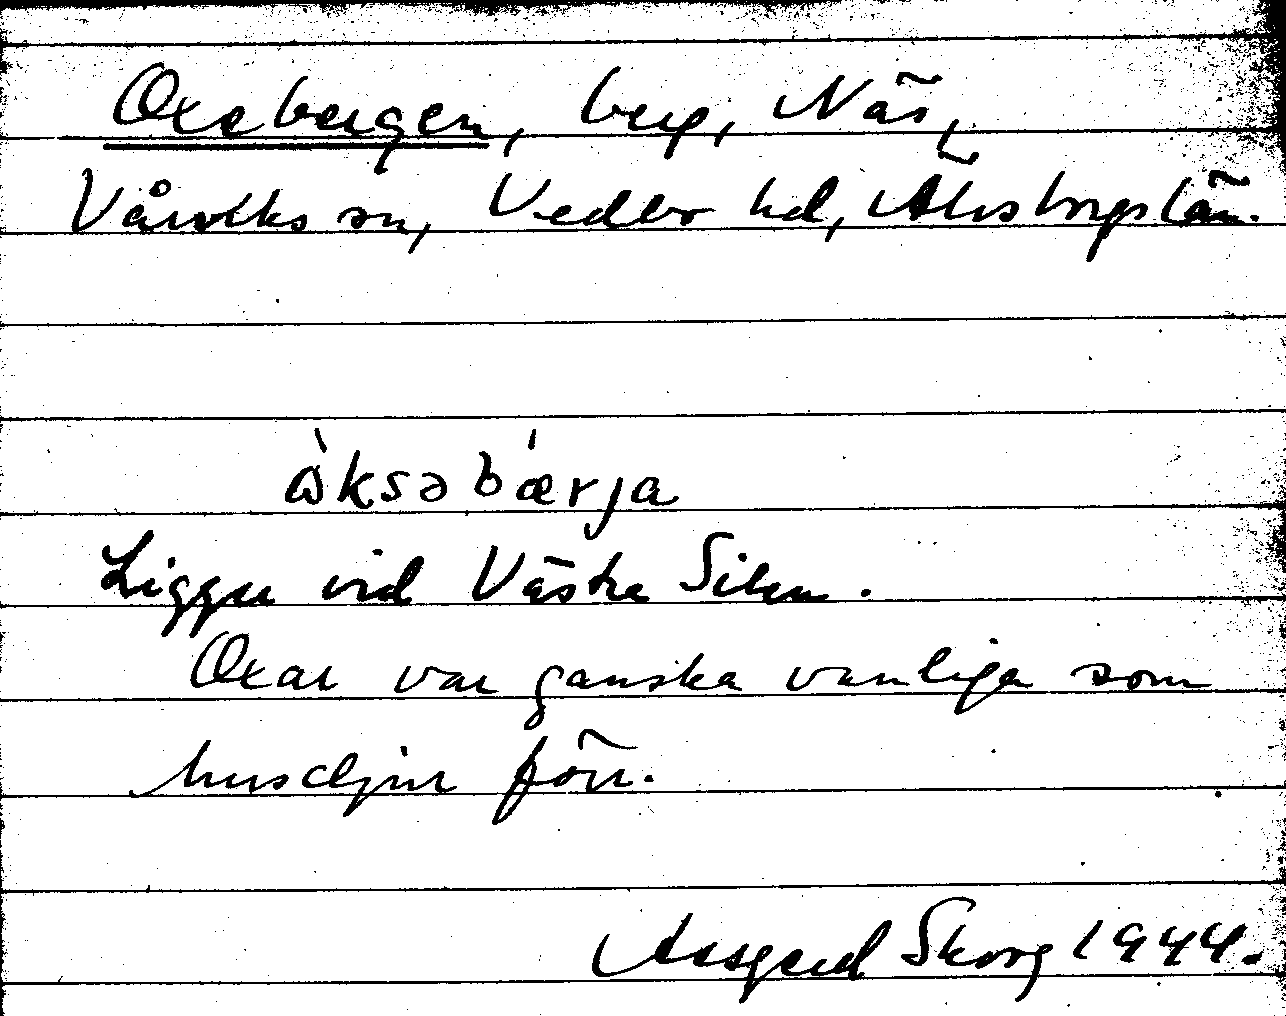 Oxebergen, berg, Näs,
Vårviks sn, Vedbo hd, Älvsborgs län.
ὼksəbǽrja
Ligger vid Västra Silen.
Oxar var ganska vanliga som
husdjur förr.
Assgerd Skorg 1944.